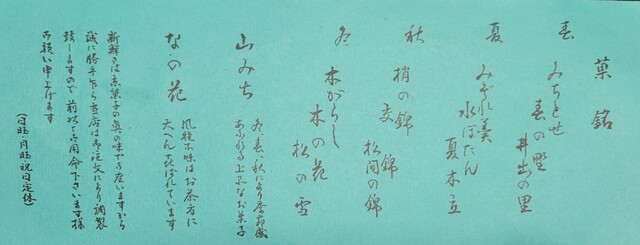 菓銘
春 みちとせ
春の野
井出の里
夏 みぞれ羹
水ぼたん
夏木立
秋 梢の錦
錦
松間の錦
冬 木がらし
木の花
松の雪
山みち 冬、春、秋により季節感
あふれる上品なお菓子
なの花 風穏不味はお茶方に
大へん喜ばれています
新鮮さは京菓子の真の味で御座いますから
誠に勝手乍ら当店は御注文により調製
致しますので前以て御用命下さいます様
お願い申上げます
(日曜・月曜・祝日定休)